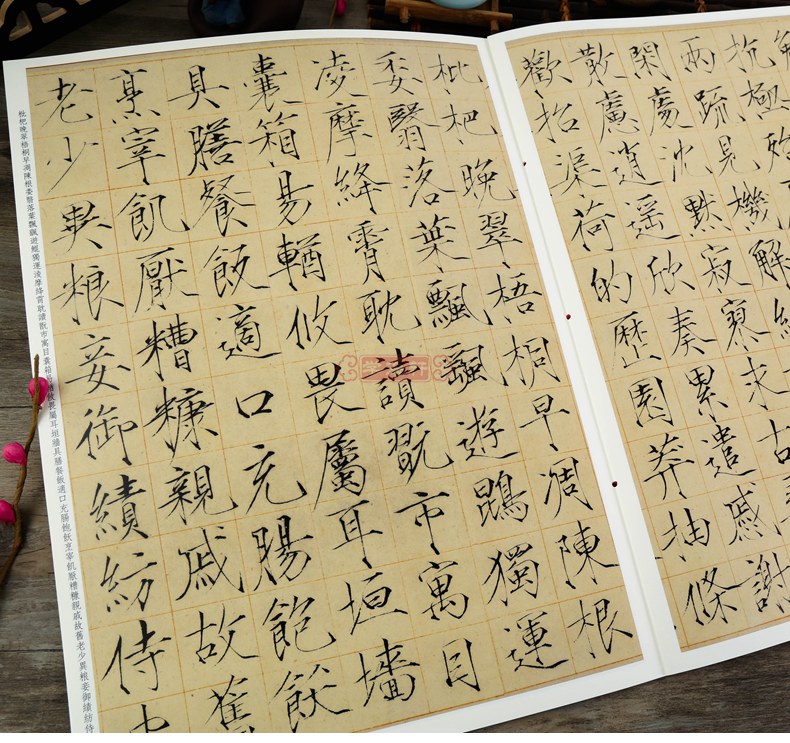 抗極
兩疏見機解
閑處沈默寂寥求古
散慮逍遙欣奏累遣慼謝
歡招渠荷的歷園莽抽條
枇杷晚翠梧桐早凋陳根
委翳落葉飄颻遊鵾獨運
凌摩絳霄耽讀翫市寓目
囊箱易輶攸畏屬耳垣墻
具膳餐飯適口充腸飽飫
烹宰飢厭糟糠親戚故舊
老少異粮妾御績紡侍
枇杷晚翠梧桐早凋陳根委翳落葉飄颻遊鵾獨運凌摩絳霄耽讀翫市寓目囊箱易輶攸畏屬耳垣墻具膳餐飯適口充腸飽飫烹宰飢厭糟糠親戚故舊老少異粮妾御績紡侍